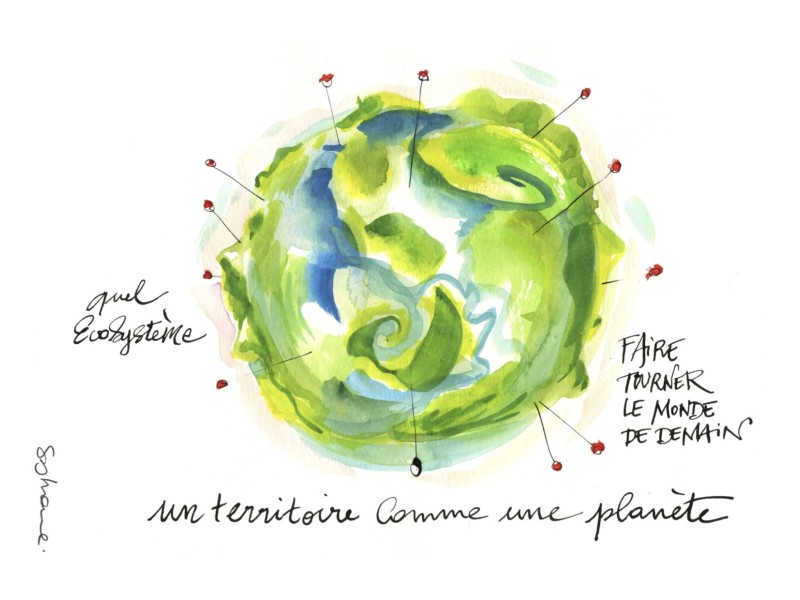 quel
Ecosystème
FAIRE
TOURNER
LE MONDE
DE DEMAIN
un territoire comme une planète